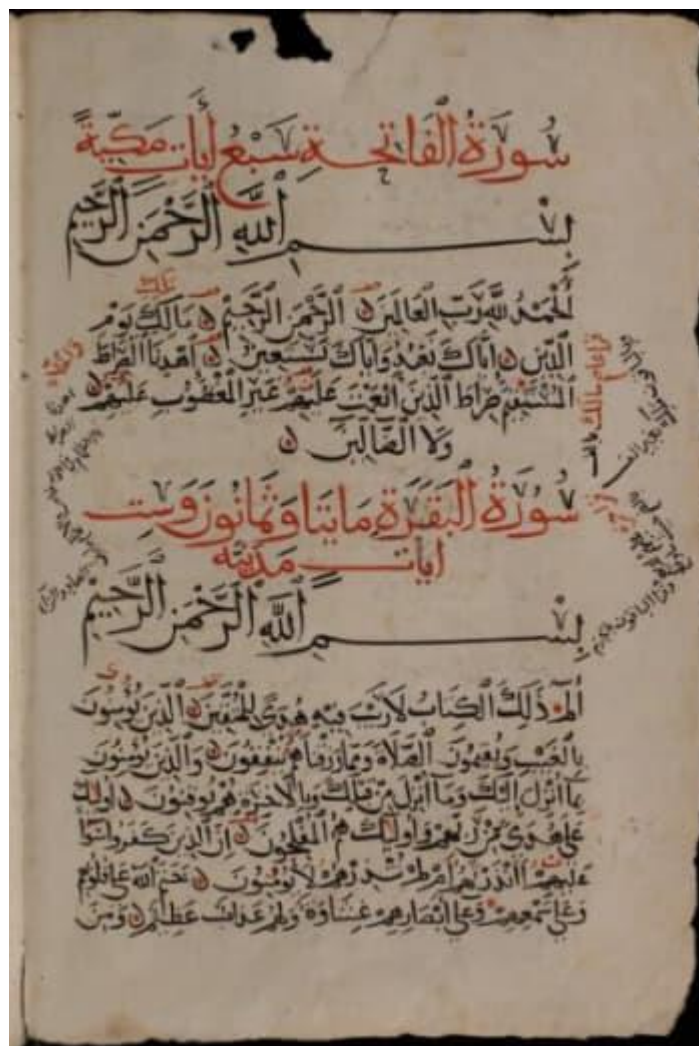 سورة الفاتحة سبع أيات مكية
بسم الله الرحمن الرحيم
الحمد لله رب العالمين الرحمن الرحيم مالك يوم
الدين اياك نعبد واياك نستعين اهدنا الصراط
المستقيم صراط الذين انعمت عليهم غير المغضوب عليهم
ولا الضالين
سورة البقرة مايتا وثمانون وست
ايات مدنية
بسم الله الرحمن الرحيم
الم ذلك الكتاب لا ريب فيه هدى للمتقين الذين يؤمنون
بالغيب ويقيمون الصلاة ومما رزقناهم ينفقون والذين يؤمنون
بما انزل اليك وما انزل من قبلك وبالاخرة هم يوقنون اوليك
على هدى من ربهم واوليك هم المفلحون ان الذين كفروا سوا
عليهم اانذرتهم ام لم تنذرهم لا يومنون ختم الله على قلوبهم
وعلى سمعهم وعلى ابصارهم غشاوة ولهم عذاب عظيم ومن